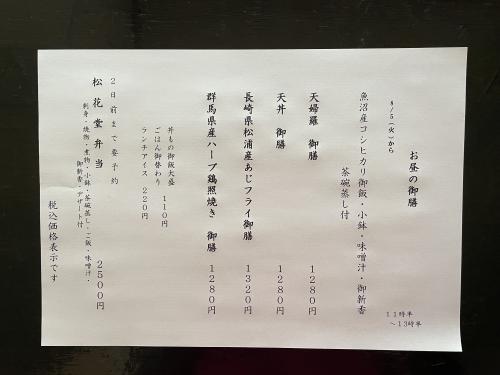 お昼の御膳
8/5(火)から
11時半
～13時半
魚沼産コシヒカリ御飯・小鉢・味噌汁・御新香
茶碗蒸し付
天婦羅 御膳 1280円
天丼 御膳 1280円
長崎県松浦産あじフライ御膳 1320円
群馬県産ハーブ鶏照焼き 御膳 1280円
丼もの御飯大盛
ごはん御替わり 110円
ランチアイス 220円
2日前まで要予約
松花堂弁当 2500円
刺身・焼物・煮物・小鉢・茶碗蒸し・ご飯・味噌汁・
御新香・デザート付
税込価格表示です